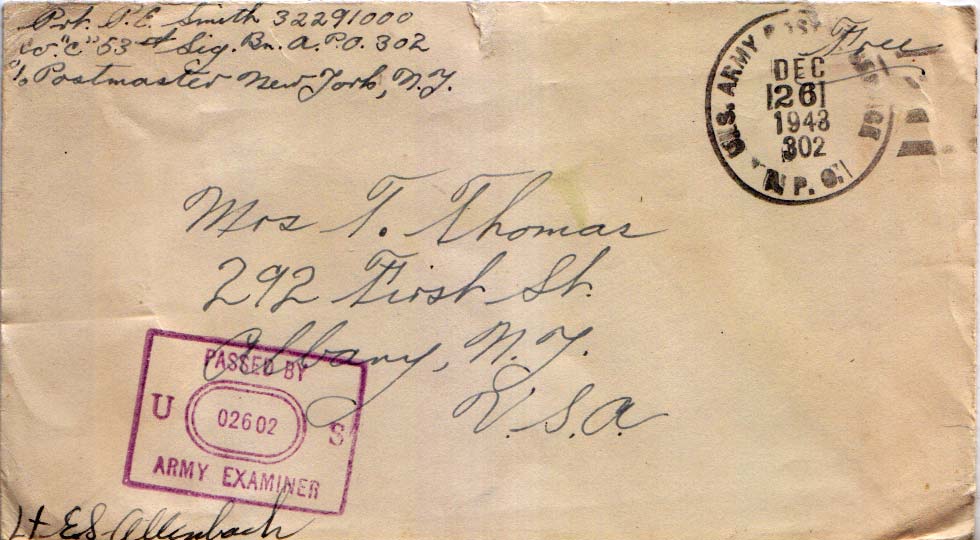 Pvt. P.E. Smith 32291000
Co. "C" 53rd Sig. Bn. A.P.O. 302
c/o Postmaster New York, N.Y.
Free
U.S. ARMY POSTAL
DEC
26
1943
302
A.P.O.
Mrs T. Thomas
292 First St.
Albany, N.Y.
U.S.A.
PASSED BY
U 02602 S
ARMY EXAMINER
Lt E.S. Allenbach